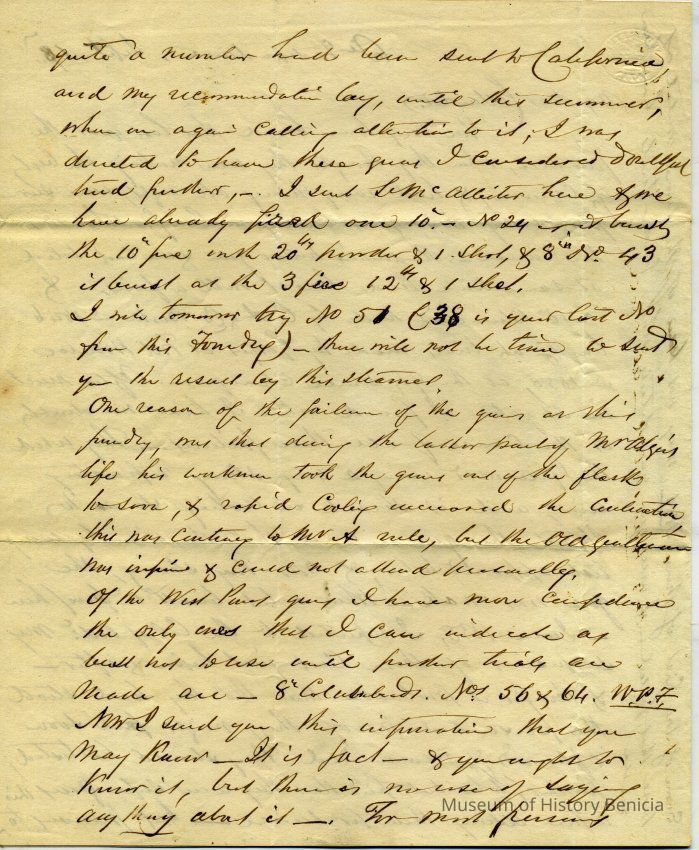 quite a number had been sent to California
and my recommendation lay, until this summer,
when on again calling attention to it, I was
directed to have these guns I considered doubtful
tried further, -. I sent Lt McAllister here & we
have already fired one 10". - No 24 - it burst
the 10" fire with 20 lbs powder & 1 shot, & 8 in No. 43
it burst at the 3 fire 12 lbs & 1 shot.
I will tomorrow try No 51 (38 is your last No
from this Foundry) - there will not be time to send
you the result by this steamer.
One reason of the failure of the guns at this
foundry, was that during the latter part of Mr Alger's
life his workmen took the guns out of the flasks
to soon, & rapid cooling increased the contraction
this was contrary to Mr A rule, but the Old gentleman
was infirm & could not attend personally.
Of the West Point guns I have more confidence
the only ones that I can indicate as
best not to use until further trials are
made are - 8" Columbiads. Nos 56 & 64. W.P.F.
Now I send you this information that you
may know - It is fact - & you ought to
know it, but there is no use of saying
anything about it -. For most persons
Museum of History Benicia